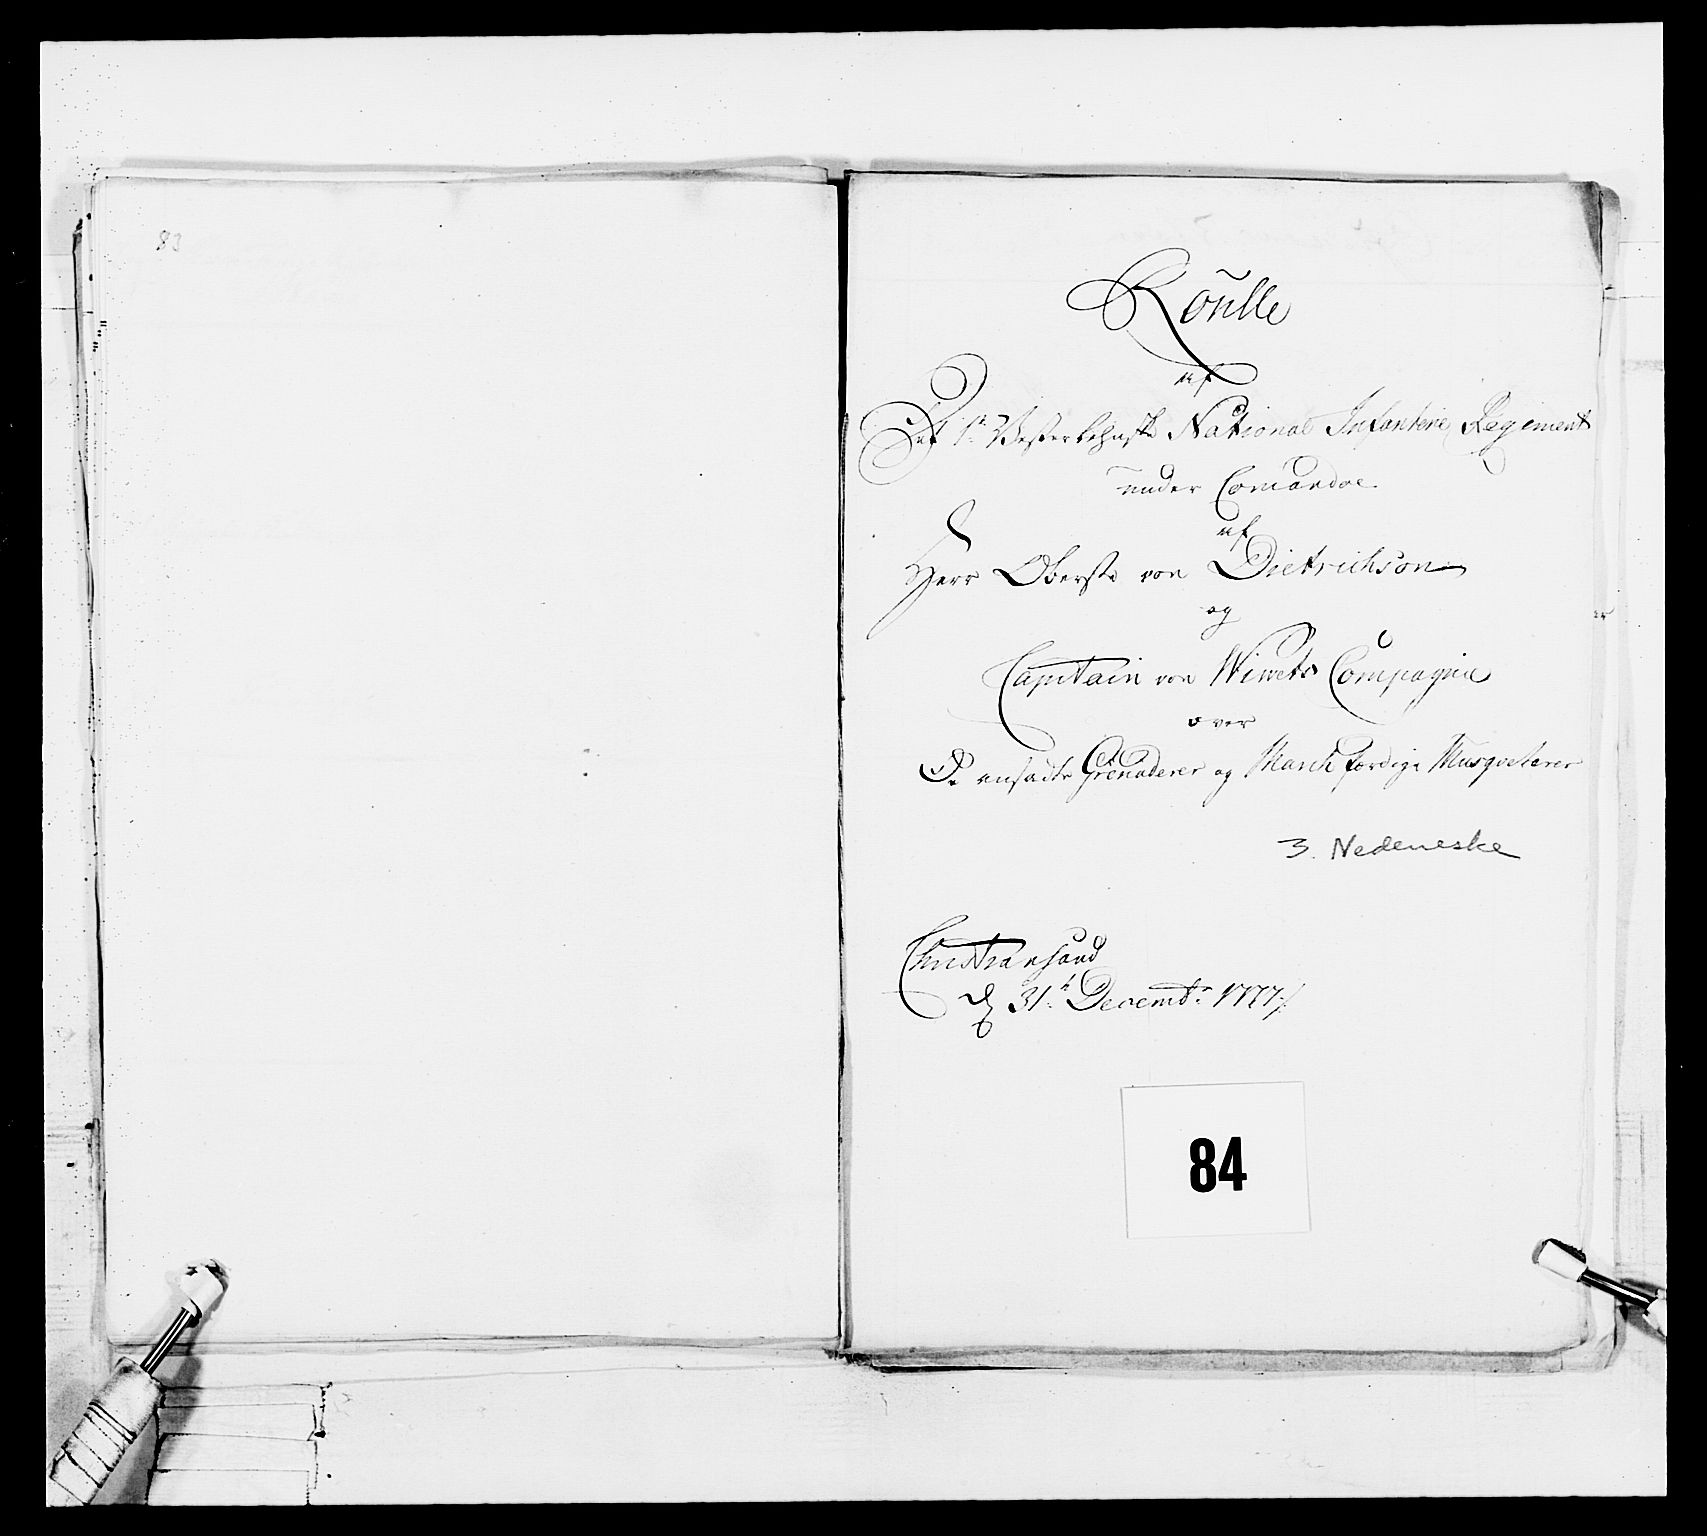 83
Roulle
af
Det 1te Vesterlehnske National Infanterie Regiment
under Comandoe
af
Herr Oberste von Dietrichson
og
Capitain von Wiwets Compagnie
over
De ansadte Grenaderer og March færdige Musqueterer
3. Nedeneske
Christiansand
d 31te Decembr 1777
84